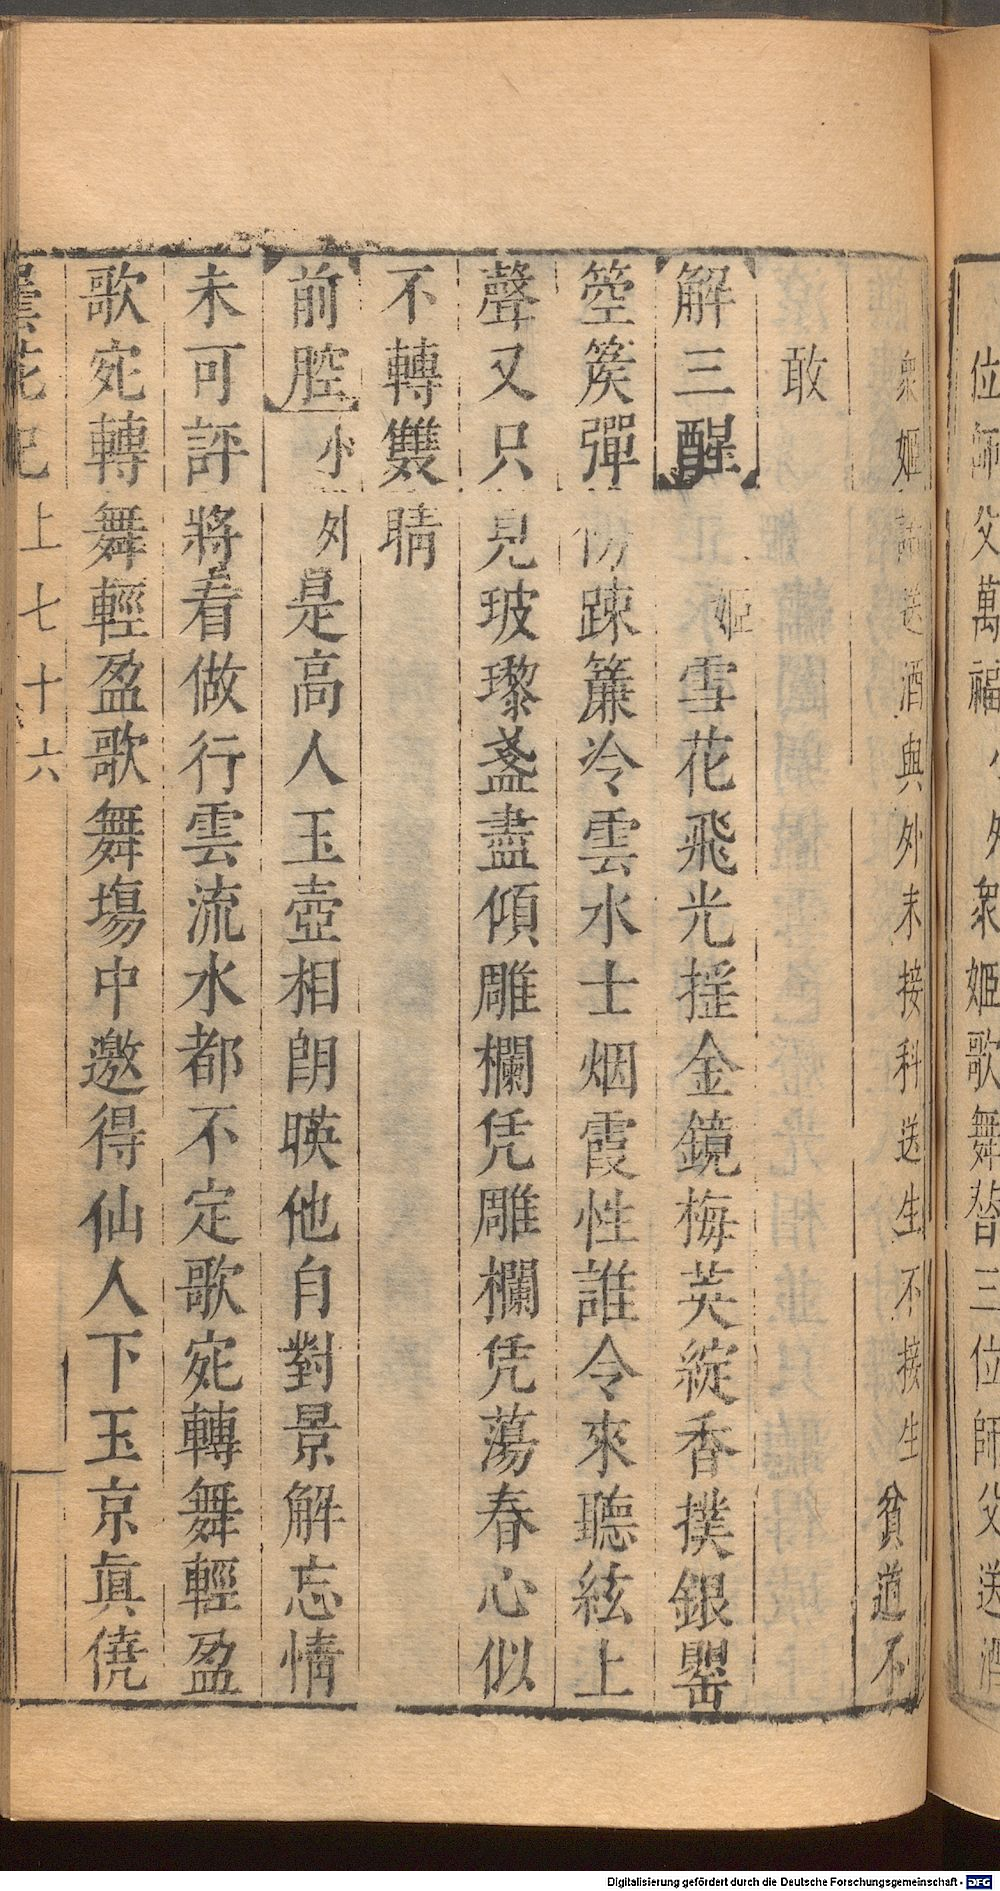 位師父萬福小外衆姬歌舞畣三位師父送酒
衆姬送酒與外末接科送生不接生貧道不
敢
解三酲姬雪花飛光揺金鏡梅英綻香撲銀罌
箜篌彈傍踈簾冷雲水士烟霞性誰令來聽絃上
聲又只見玻瓈盞盡傾雕欄凭雕欄凭蕩春心似
不轉雙睛
前腔小外是高人玉壺相朗暎他自對景解忘情
未可評將看做行雲流水都不定歌宛轉舞輕盈
歌宛轉舞輕盈歌舞塲中邀得仙人下玉京眞僥
曇花記 上 七十六
Digitalisierung gefördert durch die Deutsche Forschungsgemeinschaft - DFG